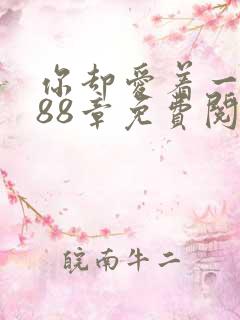 你却爱着一
88章免费阅
皖南牛二